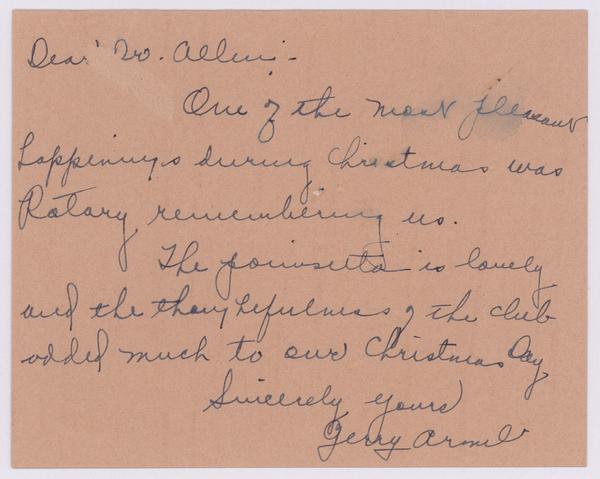 Dear Mr. Allen: -
One of the most pleasant
happenings during Christmas was
Rotary remembering us.
The poinsetta is lovely
and the thoughtfulness of the club
added much to our Christmas Day,
Sincerely yours
Gerry